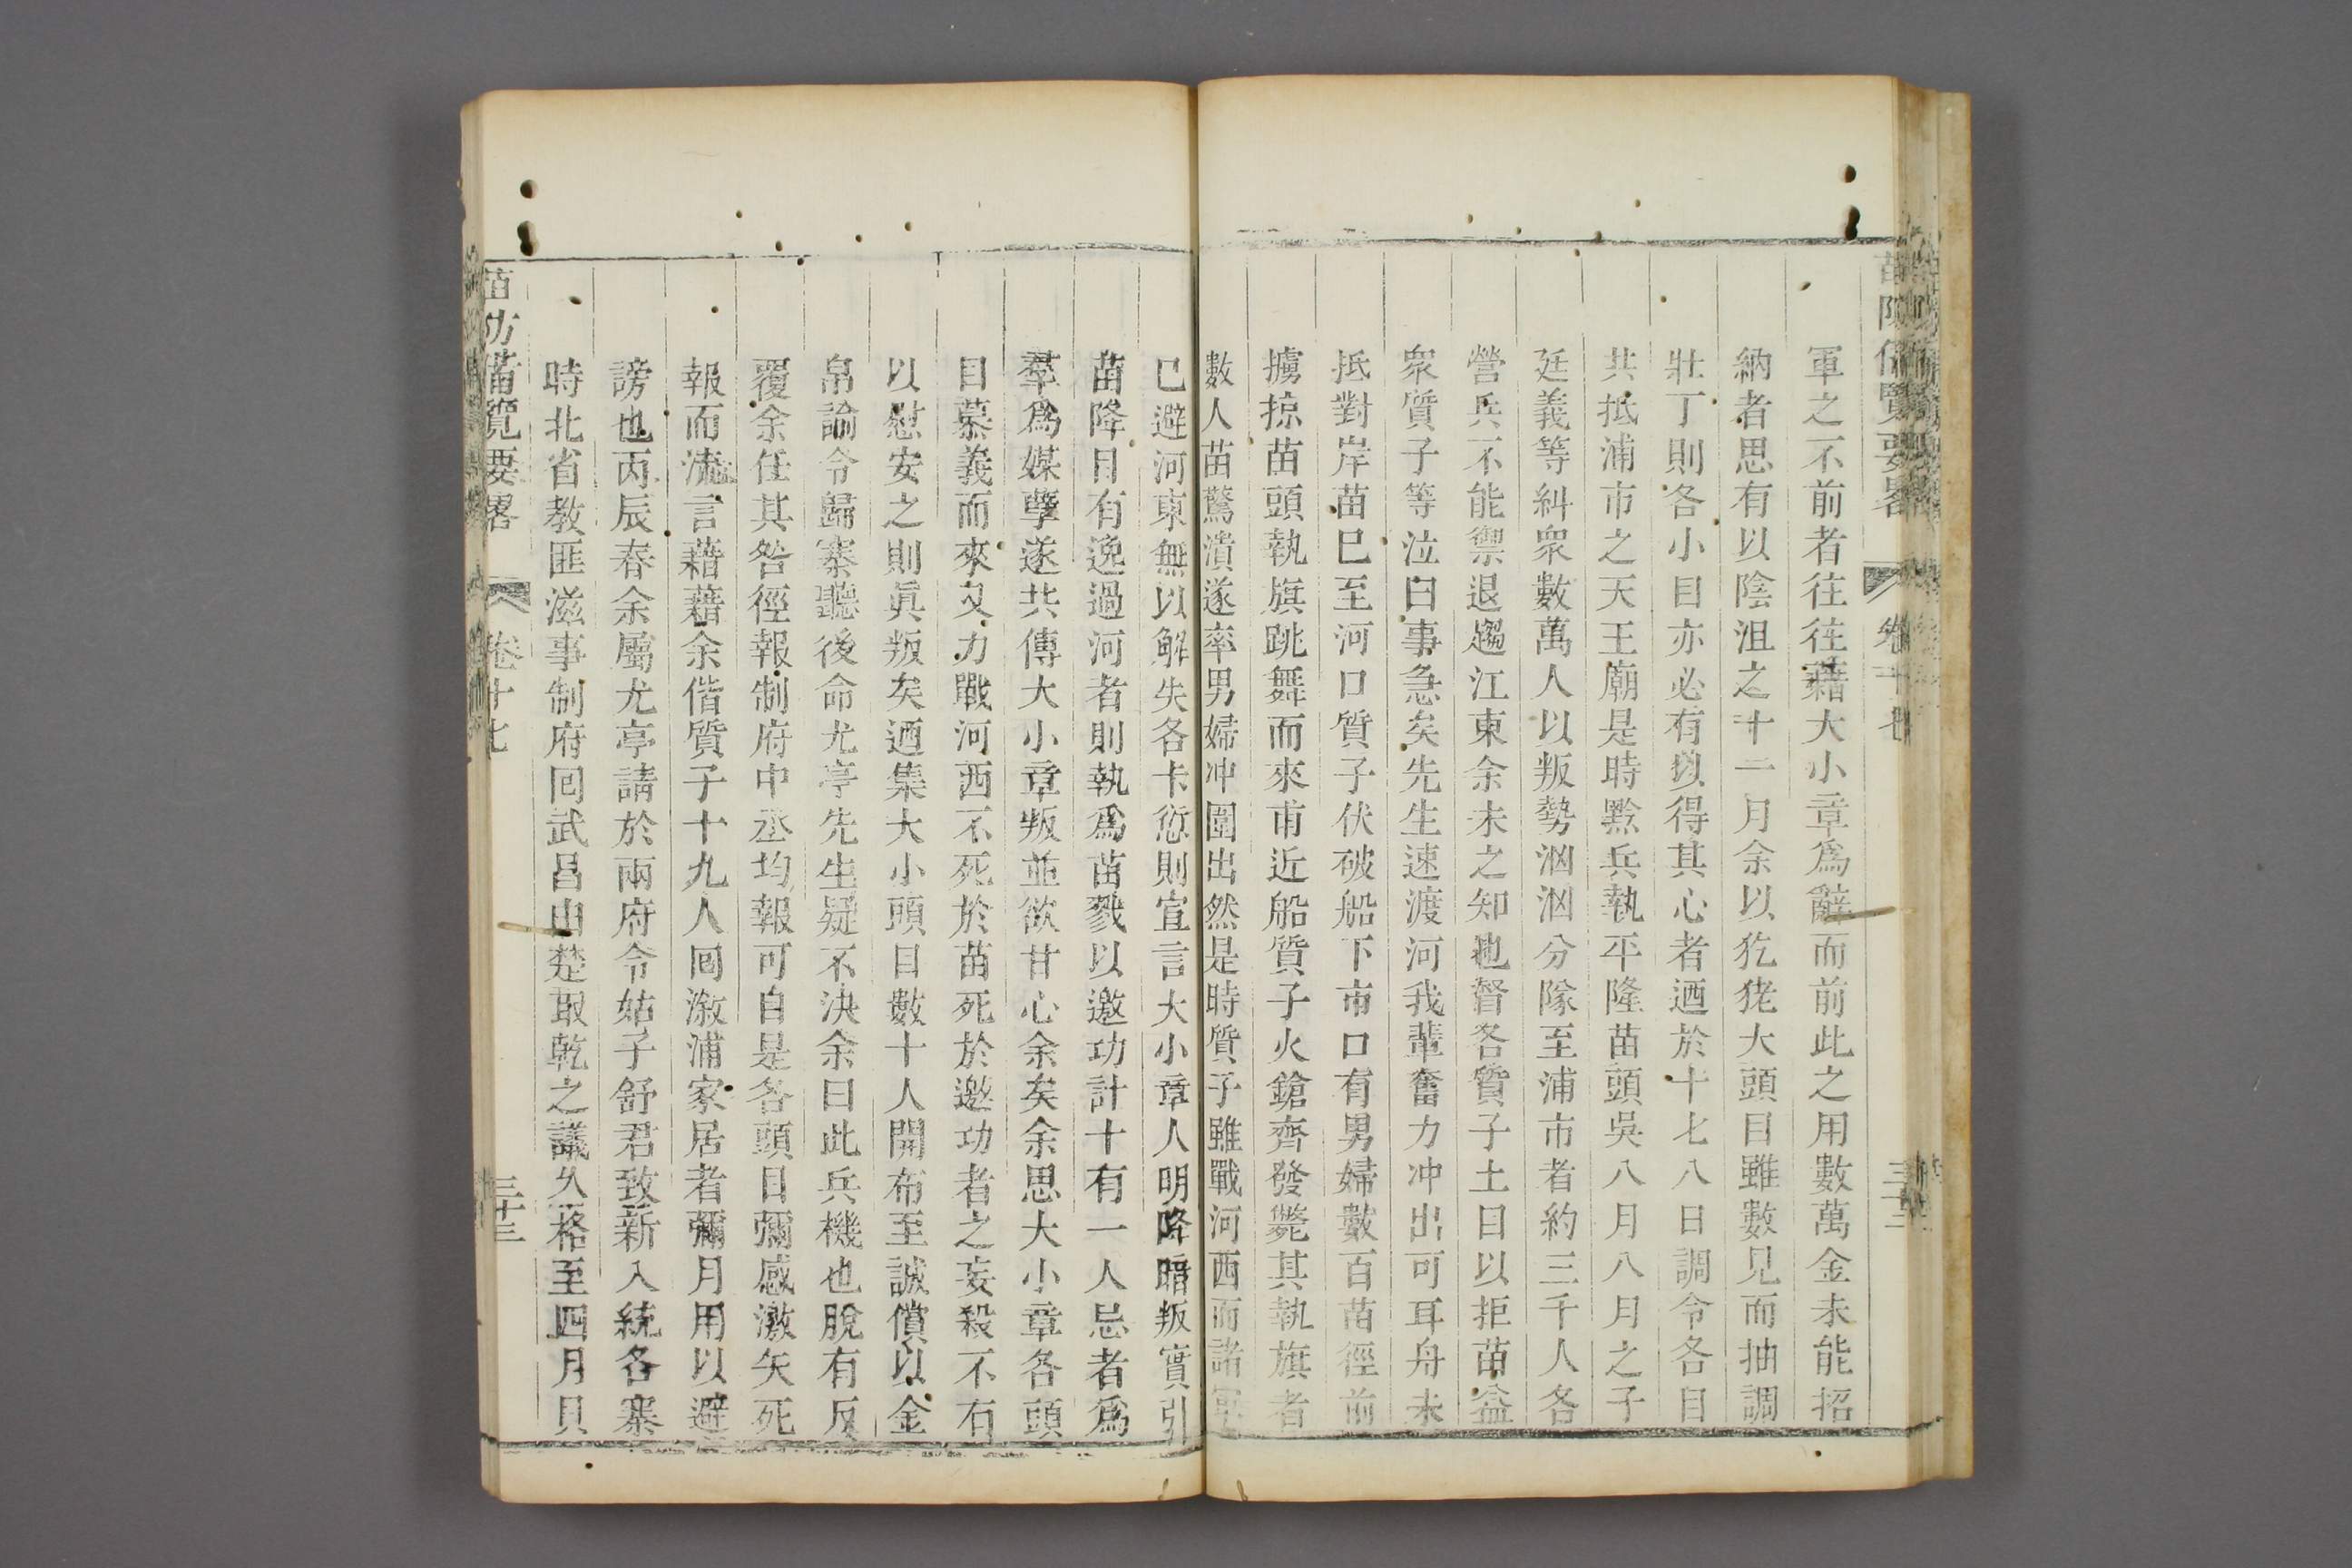 苗防備覽要畧 卷十七 三十二
軍之不前者往往藉大小章爲辭而前此之用數萬金未能招
納者思有以陰沮之十一月余以犵狫大頭目雖數見而抽調
壯丁則各小目亦必有以得其心者迺於十七八日調令各目
共抵浦市之天王廟是時黔兵執平隆苗頭吳八月八月之子
廷義等糾衆數萬人以叛勢洶洶分隊至浦市者約三千人各
營兵不能禦退趨江東余未之知也督各質子土目以拒苗益
衆質子等泣曰事急矣先生速渡河我輩奮力冲出可耳舟未
抵對岸苗已至河口質子伏破船下市口有男婦數百苗徑前
擄掠苗頭執旗跳舞而來甫近船質子火鎗齊發斃其執旗者
數人苗驚潰遂率男婦冲圍出然是時質子雖戰河西而諸軍
已避河東無以解失各卡愆則宣言大小章人明降暗叛實引
苗降目有逸過河者則執爲苗戮以邀功計十有一人忌者爲
羣爲媒孽遂共傳大小章叛並欲甘心余矣余思大小章各頭
目慕義而來又力戰河西不死於苗死於邀功者之妄殺不有
以慰安之則眞叛矣迺集大小頭目數十人開布至誠償以金
帛諭令歸寨聽後命尤亭先生疑不決余曰此兵機也脫有反
覆余任其咎徑報制府中丞均報可自是各頭目彌感激矢死
報而流言藉藉余偕質子十九人回漵浦家居者彌月用以避
謗也丙辰春余屬尤亭請於兩府令姑子舒君致新入統各寨
時北省教匪滋事制府回武昌由楚取乾之議久格至四月貝
苗防備覽要畧 卷十七 三十三